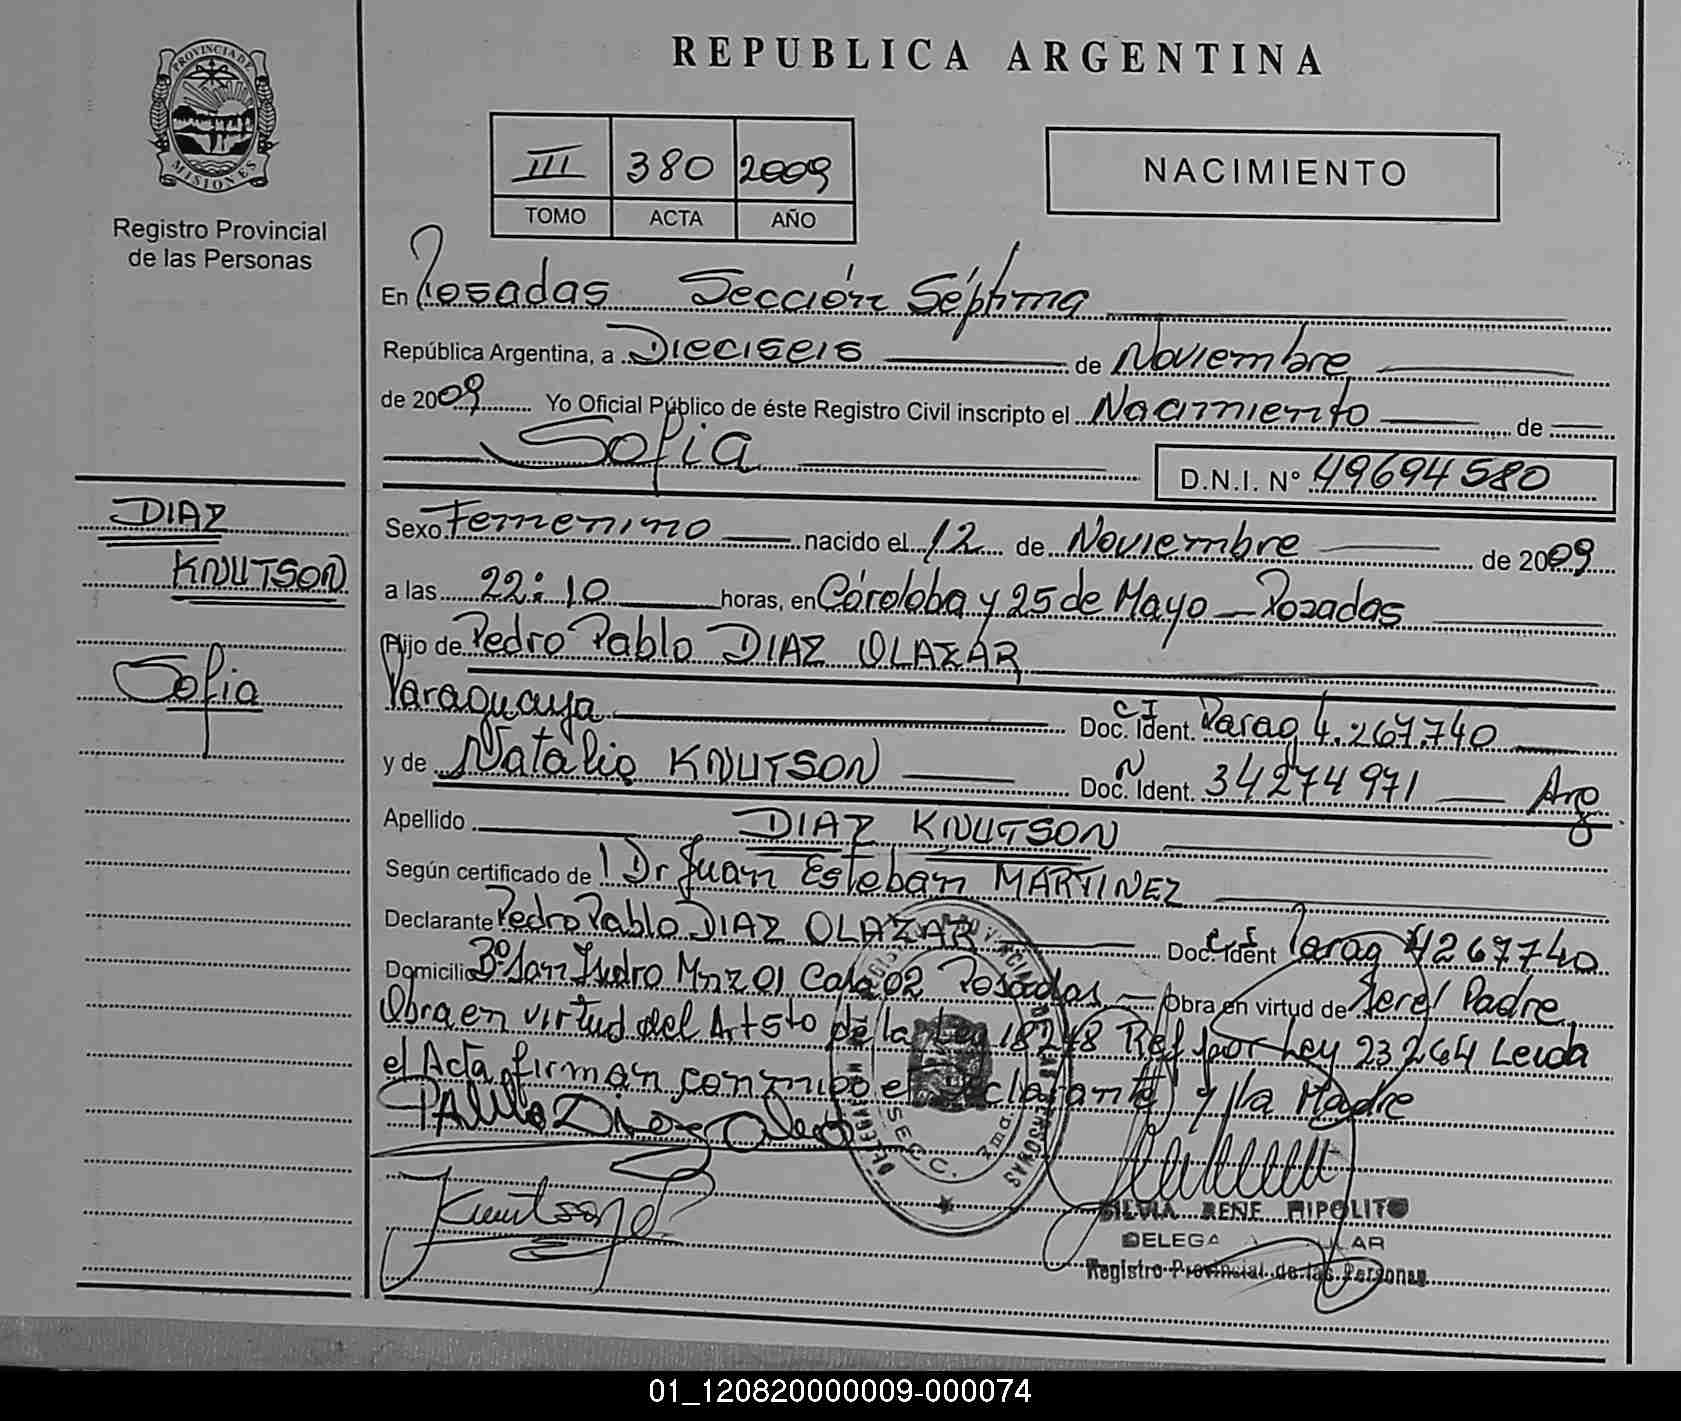 PROVINCIA DE
MISIONES
Registro Provincial
de las Personas
REPUBLICA ARGENTINA
III 380 2009
TOMO ACTA AÑO
NACIMIENTO
En Posadas Sección Séptima
República Argentina, a Dieciseis de Noviembre
de 2009 Yo Oficial Público de éste Registro Civil inscripto el Nacimiento de
Sofia
D.N.I. Nº 49694580
DIAZ
KNUTSON
Sofia
Sexo Femenino nacido el 12 de Noviembre de 2009
a las 22:10 horas, en Córdoba y 25 de Mayo – Posadas
Hijo de Pedro Pablo DIAZ OLAZAR
Paraguaya Doc. Ident. CI Parag 4.267.740
y de Natalia KNUTSON Doc. Ident. N 34274971 Arg
Apellido DIAZ KNUTSON
Según certificado de Dr Juan Esteban MARTINEZ
Declarante Pedro Pablo DIAZ OLAZAR Doc. Ident Parag 4267740
Domicilio Bº San Isidro Mnz 01 Casa 02 Posadas – Obra en virtud de Ser el Padre
Obra en virtud del Art 5to de la Ley 18248 Ref por Ley 23264 Leida
el Acta firman conmigo el Declarante y la Madre
Knutson
SECC. 7ma.
SILVIA RENE HIPOLITO
Registro Provincial de las Personas
01_120820000009-000074